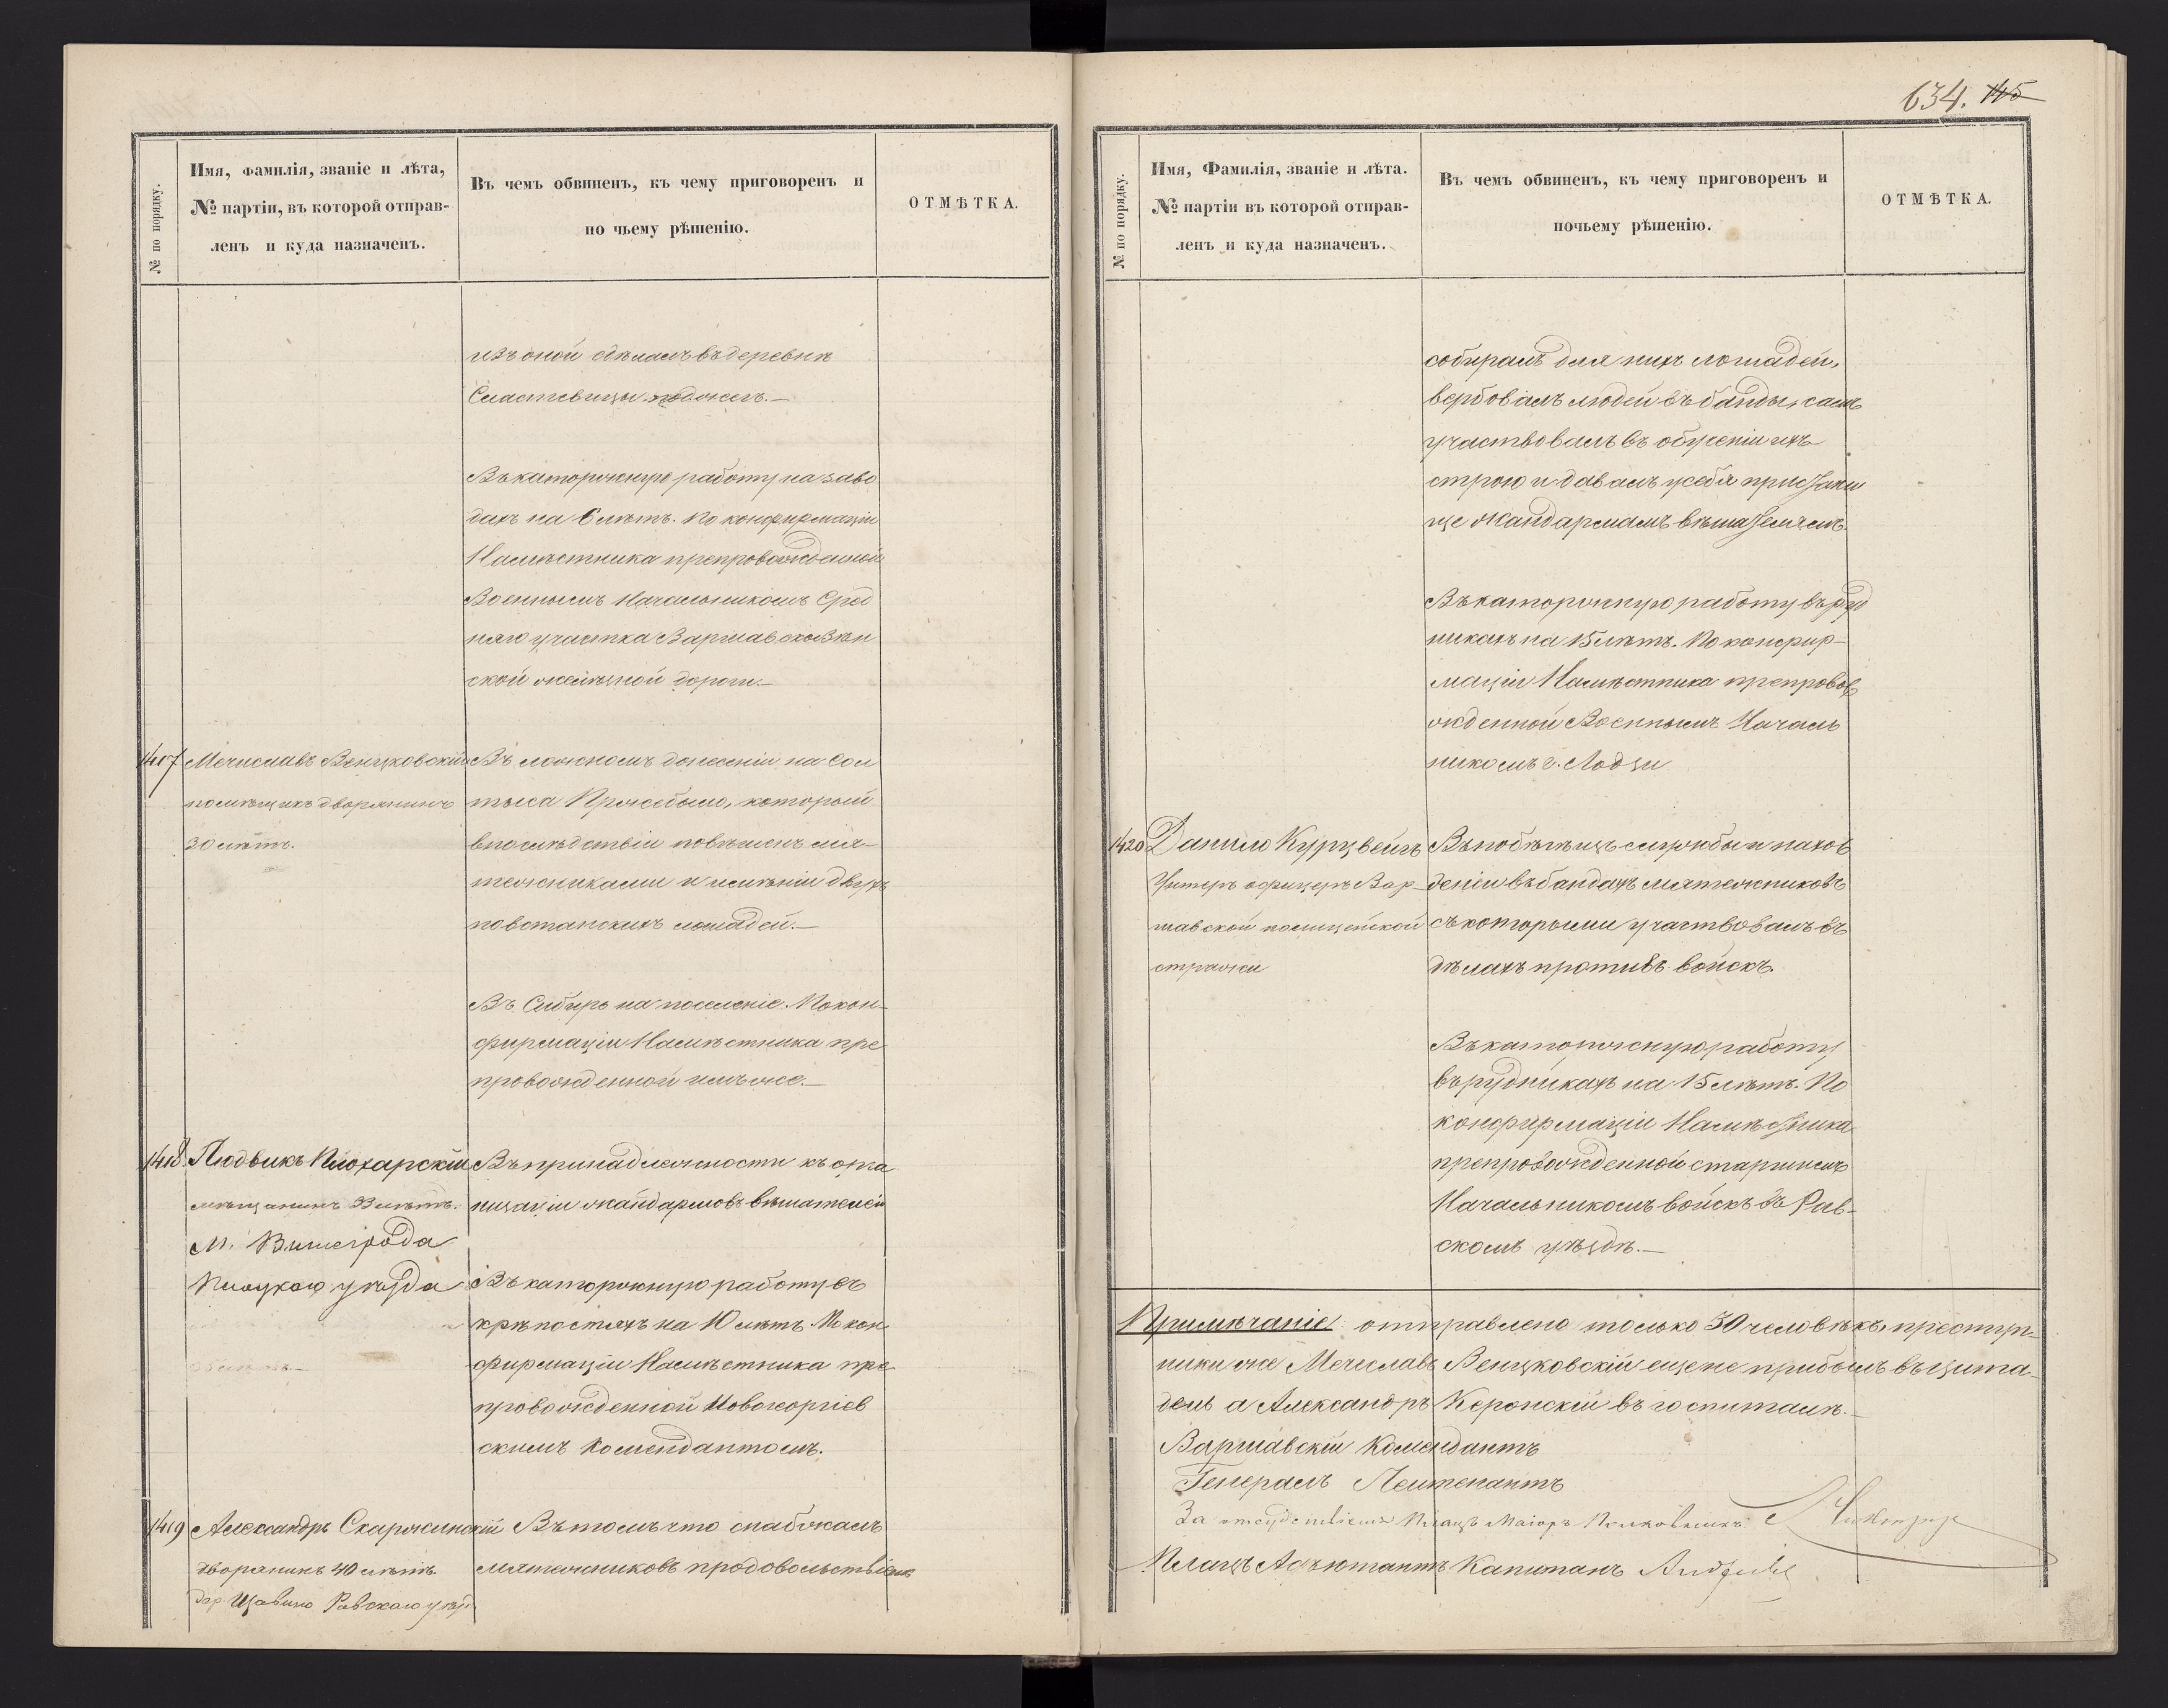 № по порядку.
Имя, фамилія, званіе и лѣта,
№ партіи, въ которой отправ-
ленъ и куда назначенъ.
Въ чемъ обвиненъ, къ чему приговоренъ и
по чьему рѣшенію.
ОТМѢТКА.
изъ оной сдѣлалъ въ деревнѣ
поджогъ.—
Въ каторжную работу на заво
дахъ на 6 лѣтъ. По конфирмаціи
Намѣстника препровожденной
Военнымъ Начальникомъ Сред
няго участка Варшавско Вѣн
ской желѣзной дороги.—
1407 Мечиславъ Венцковскій
помѣщикъ дворянинъ
30 лѣтъ.
Въ ложномъ донесеніи на Сол
тыса который
впослѣдствіи повѣшенъ мя-
тежниками и имѣніи двухъ
повстанскихъ лошадей.—
Въ Сибирь на поселеніе. По кон-
фирмаціи Намѣстника пре
провожденной имъ же.—
1418. Людвикъ Піохарскій
мѣщанинъ 33 лѣтъ.
М. Вишегрода
Плоцкаго уѣзда
Въ принадлежности къ орга
низаціи жандармовъ вѣшателей
Въ каторжную работу въ
крѣпостяхъ на 10 лѣтъ. По кон
фирмаціи Намѣстника пре
провожденной Новогеоргіев
скимъ Комендантомъ.
1419 Александръ Скаржинскій
дворянинъ 40 лѣтъ
дер. Равскаго уѣзд
Въ томъ что снабжалъ
мятежниковъ продовольствіемъ
634. 145
№ по порядку.
Имя, Фамилія, званіе и лѣта.
№ партіи въ которой отправ-
ленъ и куда назначенъ.
Въ чемъ обвиненъ, къ чему приговоренъ и
почьему рѣшенію.
ОТМѢТКА.
собиралъ для нихъ лошадей,
вербовалъ людей въ банды, самъ
участвовалъ въ обученіи ихъ
строю и давалъ у себя пристани
ще жандармамъ вѣшателямъ.
Въ каторжную работу въ руд
никахъ на 15 лѣтъ. По конфир-
маціи Намѣстника препрово
жденной Военнымъ Началь
никомъ г. Лодзи
1420 Данило Курцвейгъ
Унтеръ офицеръ Вар-
шавской полицейской
стражи
Въ побѣгѣ изъ службы и нахож
деніи въ бандахъ мятежниковъ
съ которыми участвовалъ въ
дѣлахъ противъ войскъ.
Въ каторжную работу
въ рудникахъ на 15 лѣтъ. По
конфирмаціи Намѣстника
препровожденной старшимъ
Начальникомъ войскъ въ Рав-
скомъ уѣздѣ.—
Примѣчаніе: отправлено только 30 человѣкъ, преступ-
ники же Мечиславъ Венцковскій еще не прибылъ въ цита-
дель а Александръ Керонскій въ госпиталѣ.—
Варшавскій Комендантъ
Генералъ Лейтенантъ
За отсутствіемъ Плацъ Маіоръ Полковникъ
Плацъ Адъютантъ Капитанъ